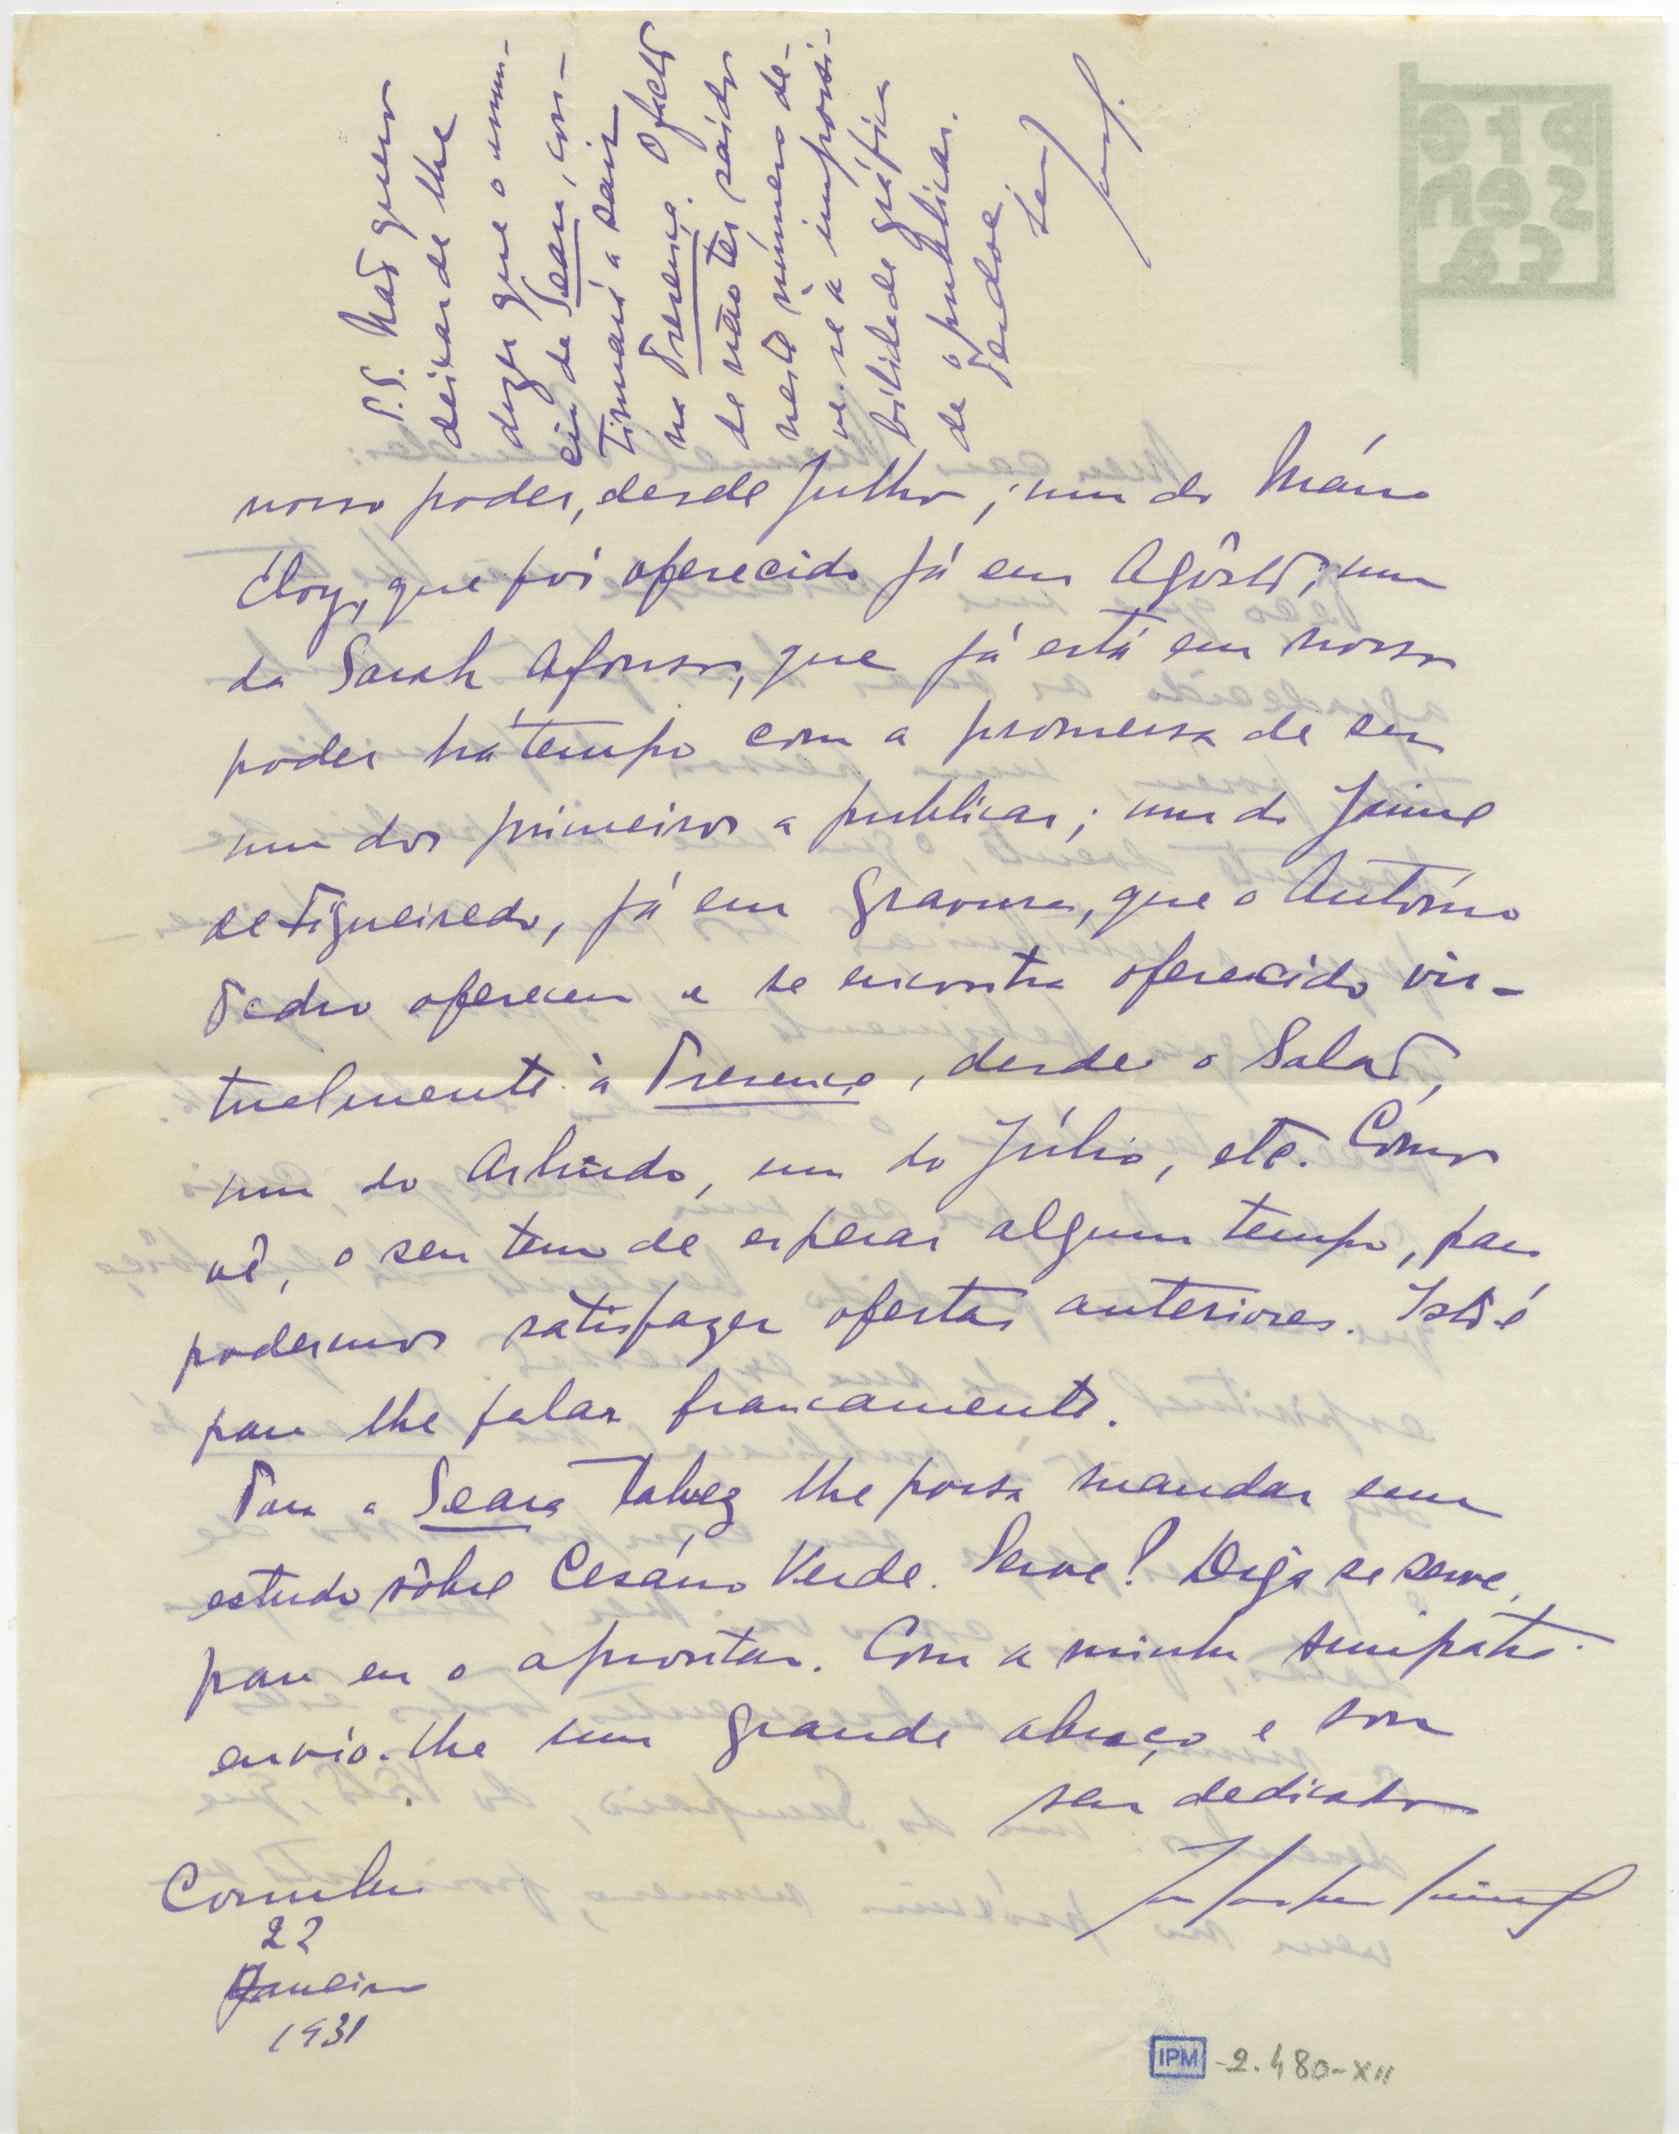 P.S. Não quero
deixar de lhe
dizer que o anún-
cio da Seara, con-
tinuará a sair
na Presença. O facto
de não ter saído
neste número de-
ve-se a impossi-
bilidade gráfica
de o publicar.
Perdoe
seu
nosso poder, desde Julho; um do Mário
Eloy, que foi oferecido já em Agôsto; um
da Sarah Afonso, que já está em nosso
poder há tempo com a promessa de ser
um dos primeiros a publicar; um do Jaime
de Figueiredo, já em gravura, que o António
Pedro ofereceu e se encontra oferecido vir-
tualmente à Presença, desde o Salão,
um do Arlindo, um do Júlio, etc. Como
vê, o seu tem de esperar algum tempo, para
podermos satisfazer ofertas anteriores. Isto é
para lhe falar francamente.
Para a Seara talvez lhe possa mandar um
estudo sôbre Cesário Verde. Serve? Diga se serve,
para eu o aprontar. Com a minha simpatia
envio-lhe um grande abraço e sou
seu dedicado
Coimbra
22
Janeiro
1931
IPM -2.480-XII
pre
sen
ça